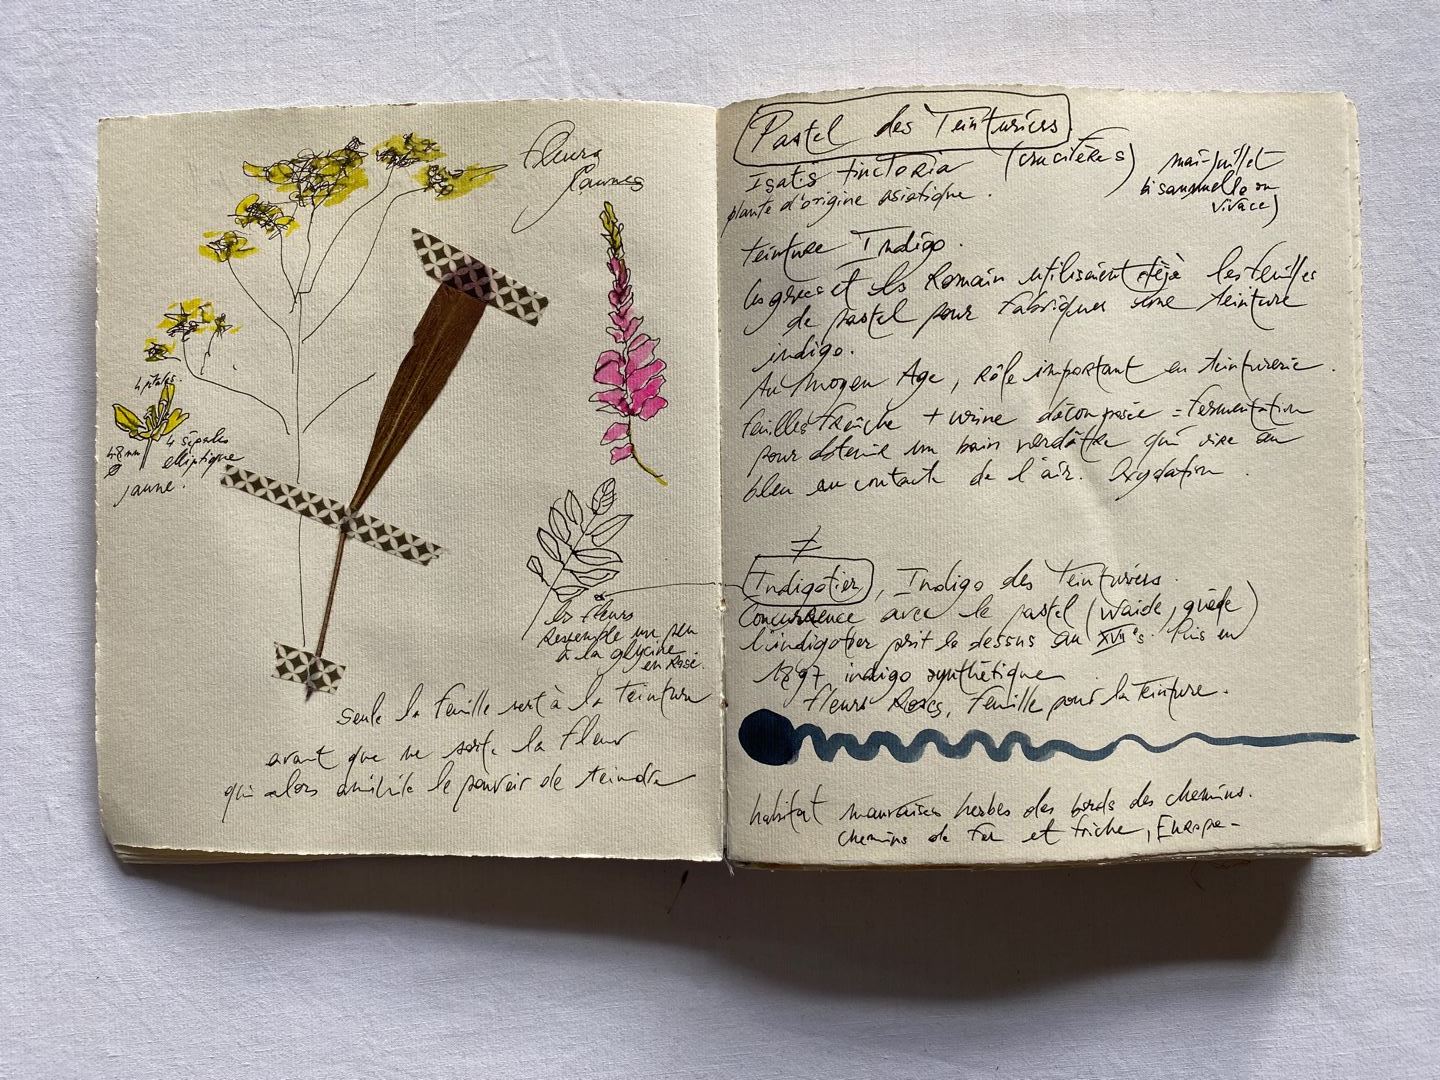 fleurs
Jaunes
4 pétales.
4 sépales
elliptique
48 mm
jaune.
les fleurs
ressemble un peu
à la glycine
en rose.
seule la feuille sert à la teinture
avant que ne sorte la fleur
qui alors annihile le pouvoir de teindre
Pastel des Teinturiers
Isatis tinctoria (crucifères)
plante d'origine asiatique.
mai-juillet
bisannuelle ou
vivace)
teinture Indigo.
les grecs et les Romain utilisaient déjà les feuilles
de pastel pour fabriquer une teinture
indigo.
Au Moyen Age, rôle important en teinturerie.
feuilles fraîche + urine décomposée = fermentation
pour obtenir un bain verdâtre qui vire au
bleu au contacte de l'air. Oxydation.
≠
Indigotier, Indigo des Teinturiers.
Concurrence avec le pastel (Waide, guède)
l'indigotier prit le dessus au XVII°s. Puis en
1897 indigo synthétique
fleurs Roses, feuille pour la teinture.
habitat mauvaises herbes des bords des chemins.
chemins de fer et friche, Europe-